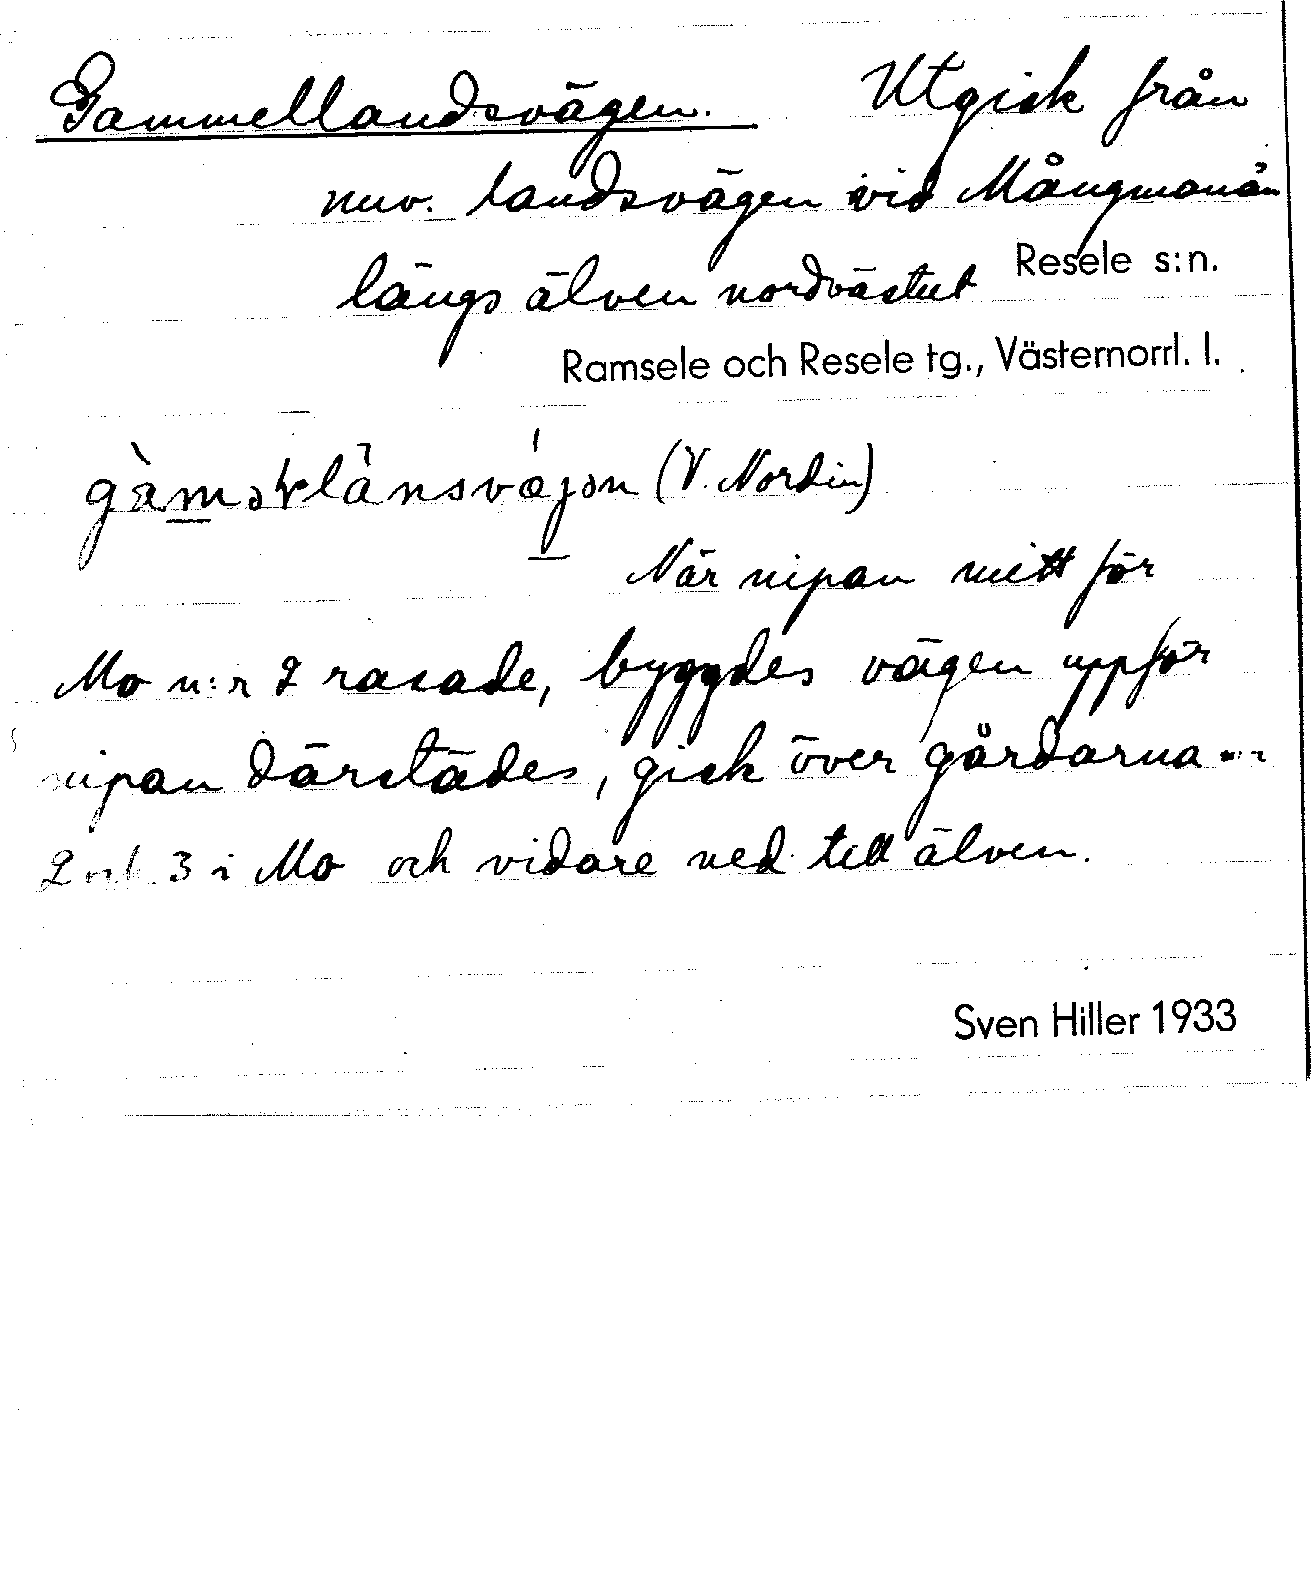 Gammellandsvägen. Utgick från
nuv. landsvägen vid Mångmanån
längs älven nordvästut Resele s:n.
Ramsele och Resele tg., Västernorrl. l.
(V. Nordin)
När nipan mitt för
Mo n:r 2 rasade, byggdes vägen uppför
nipan därstädes, gick över gårdarna n:r
2 och 3 i Mo och vidare ned till älven.
Sven Hiller 1933